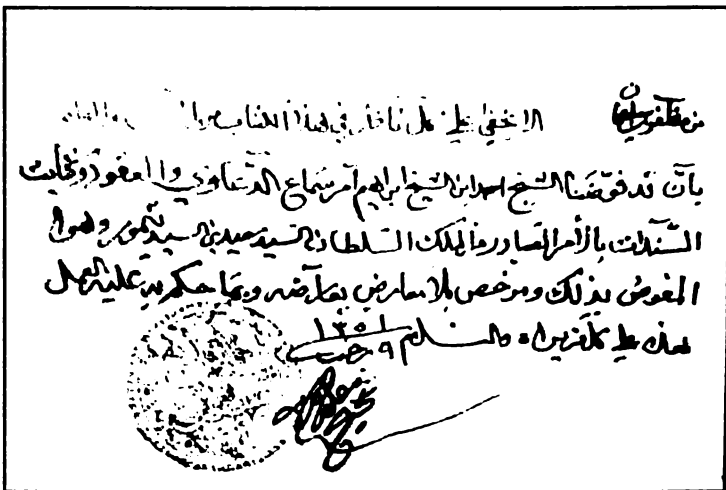 لا يخفى على كل ناظر في هذا الكتاب
بأن قد فوضنا الشيخ احمد ابن الشيخ ابراهيم أمر سماع الدعاوي والعقود وكتابت
السندات بالأمر الصادر من الملك السلطان السيد سعيد بن السيد تيمور وهوا
المفوض بذلك ومرخص بلا معارض يعارضه وبما حكم به عليه العمل
والسلام ٩ رجب ١٣٥١